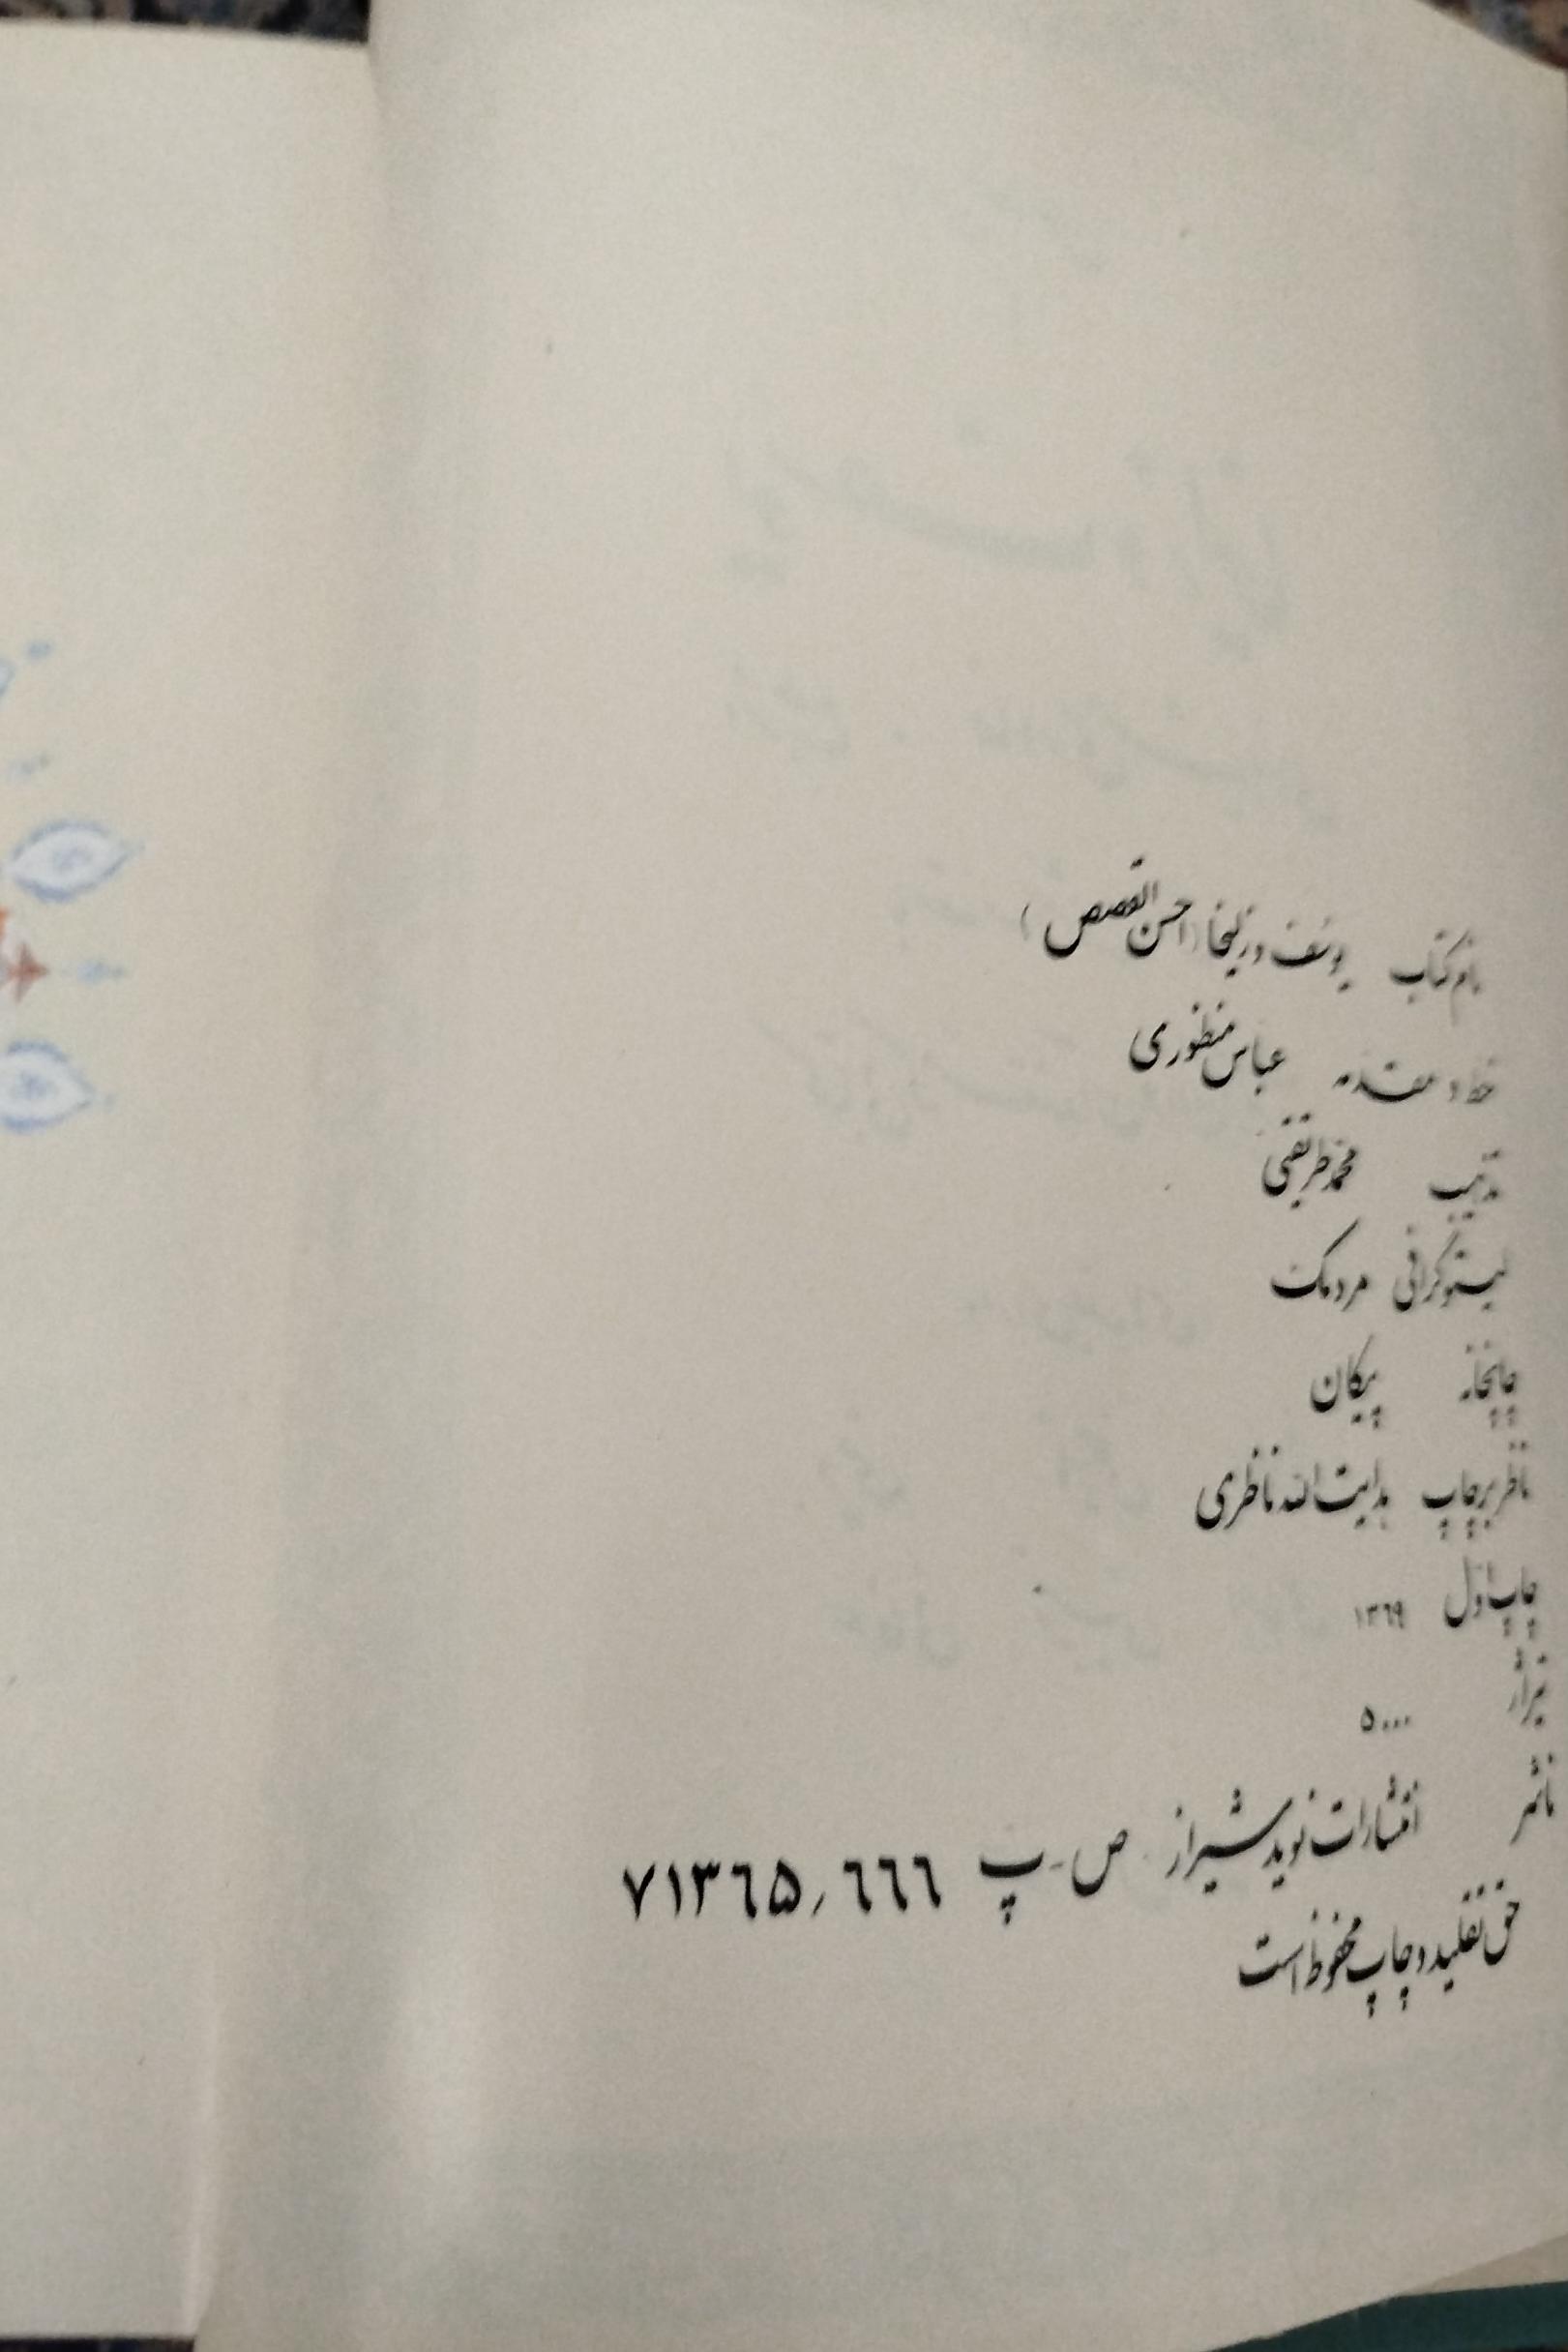 نام کتاب یوسف و زلیخا (احسن القصص)
خط و مقدمه عباس منظوری
تذهیب محمد طریقتی
لیتوگرافی مردمک
چاپخانه پیکان
ناظر بر چاپ هدایت الله ناظری
چاپ اول ۱۳۶۹
تیراژ ۵۰۰۰
ناشر انتشارات نوید شیراز ص-پ ۶۶۶/۷۱۳۶۵
حق تقلید و چاپ محفوظ است